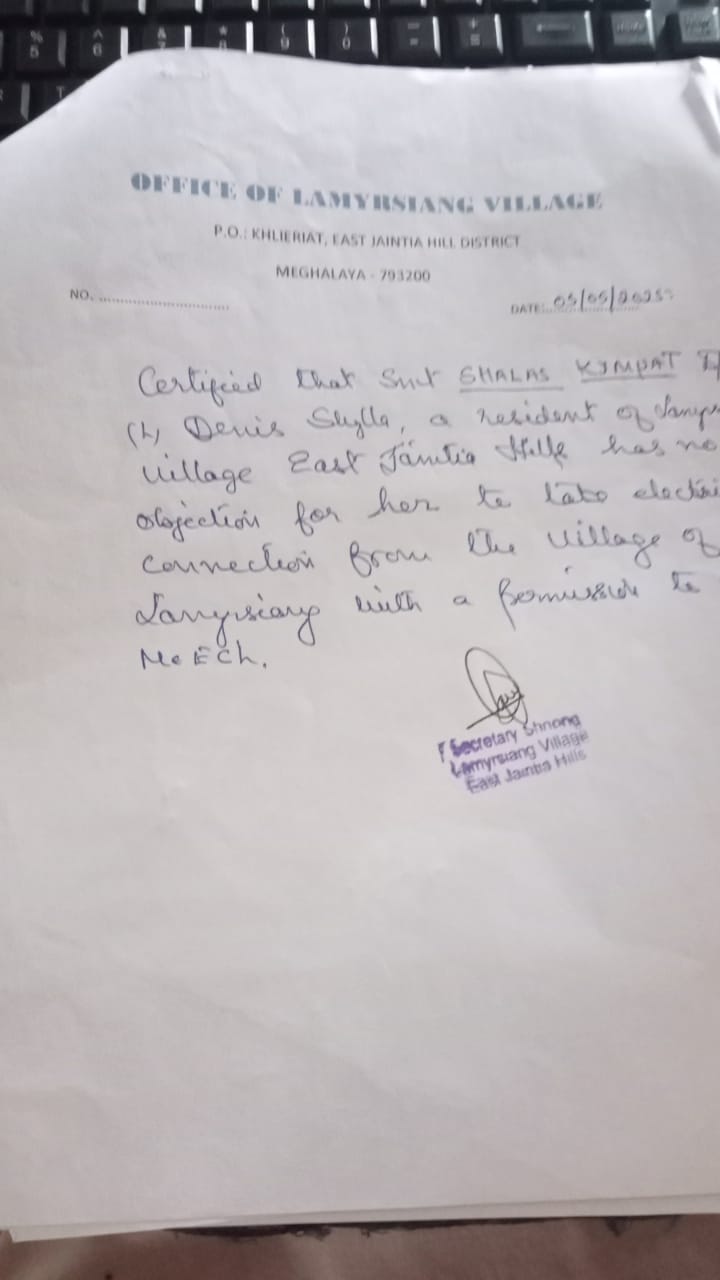 OFFICE OF LAMYRSIANG VILLAGE
P.O.: KHLIERIAT, EAST JAINTIA HILL DISTRICT
MEGHALAYA - 793200
NO. ..............................
DATE:..05/05/2025
Certified that Smt SHALAS KYMPAT
(L) Denis Shylla, a resident of Lamyr
village East Jaintia Hills has no
objection for her to take electri
connection from the village of
Lamyrsiang with a permission to
MeECL.
Secretary Shnong
Lamyrsiang Village
East Jaintia Hills